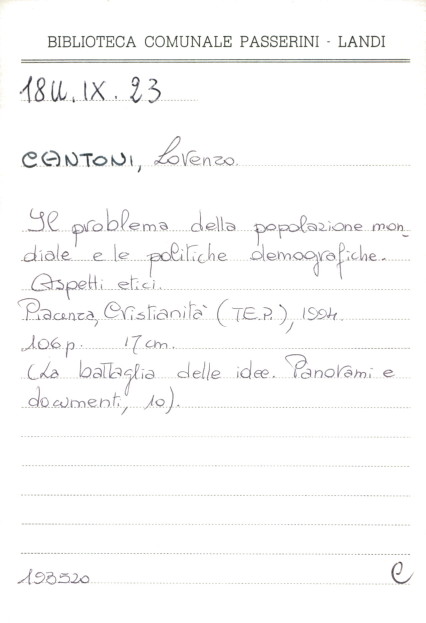 BIBLIOTECA COMUNALE PASSERINI - LANDI
18U.IX.23
CANTONI, Lorenzo.
Il problema della popolazione mon-
diale e le politiche demografiche.
Aspetti etici.
Piacenza, Cristianità (TE.P.), 1994.
106 p. 17 cm.
(La battaglia delle idee. Panorami e
documenti, 10).
193520 C